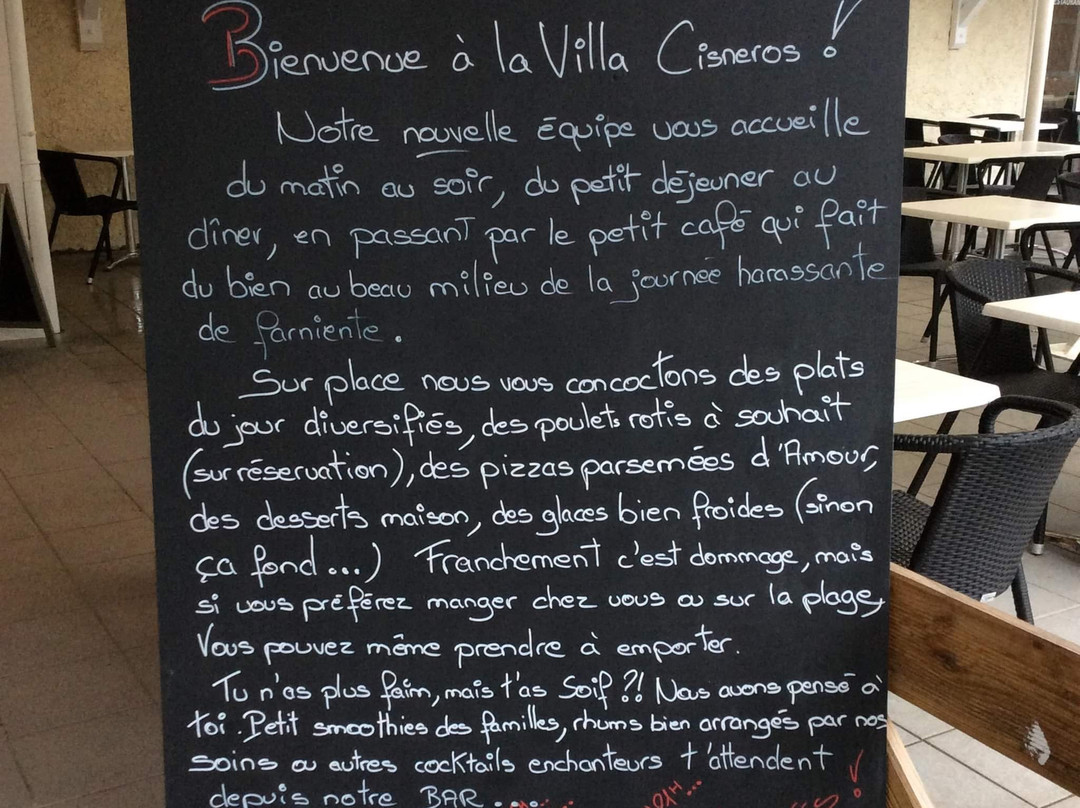 Bienvenue à la Villa Cisneros !
Notre nouvelle équipe vous accueille
du matin au soir, du petit déjeuner au
dîner, en passant par le petit café qui fait
du bien au beau milieu de la journée harassante
de farniente.
Sur place nous vous concoctons des plats
du jour diversifiés, des poulets rotis à souhait
(sur réservation), des pizzas parsemées d'Amour,
des desserts maison, des glaces bien froides (sinon
ça fond...) Franchement c'est dommage, mais
si vous préférez manger chez vous ou sur la plage,
Vous pouvez même prendre à emporter.
Tu n'as plus faim, mais t'as Soif ?! Nous avons pensé à
toi. Petit smoothies des familles, rhums bien arrangés par nos
soins ou autres cocktails enchanteurs t'attendent
depuis notre BAR....